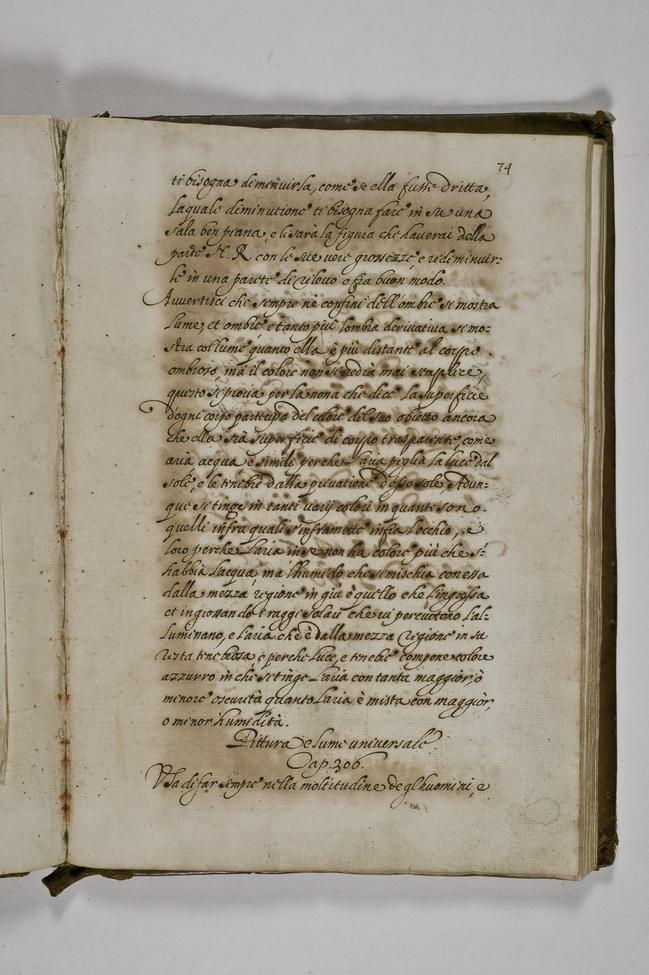 74
ti bisogna diminuirla, come se ella fusse dritta,
laquale diminutione ti bisogna fare in su una
sala ben piana, e li sarà la figura che haverai della
parte N. R. con le sue vere grossezze, e ridiminuir-
le in una parete di rilevo e fra buon modo.
Avvertisci che sempre ne confini dell'ombre si mostra
lume, et ombre e tanto piu lombra derivativa si mo-
stra col lume quanto ella è più distante al corpo
ombroso, ma il colore non si vedrà mai semplice,
questo si prova per la nona che dice la superficie
d'ogni corpo partecipa del colore del suo obietto ancora
che ella sia superficie di corpo trasparente, come
aria acqua e simili perche l'aria piglia la luce dal
sole, e le tenebre dalla privatione d'esso sole, Adun-
que si tinge in tanti varij colori in quanti sono
quelli infra quali s'inframette infra l'occhio, e
loro perche l'aria in se non ha colore più che s'-
habbia l'acqua, ma l'humido che si mischia con essa
dalla mezza regione in giu è quello che l'ingrossa
et ingrossando i raggi solari che vi percuotono l'al-
luminano, e l'aria che è dalla mezza regione in su
resta tenebrosa, e perche luce, e tenebre compone colore
azzurro in che si tinge l'aria con tanta maggior, o
minore oscurità quanto l'aria è mista con maggior,
o minor humidità.
Pittura e lume universale.
Cap. 306.
Usa di far sempre nella moltitudine de gl'huomini, e